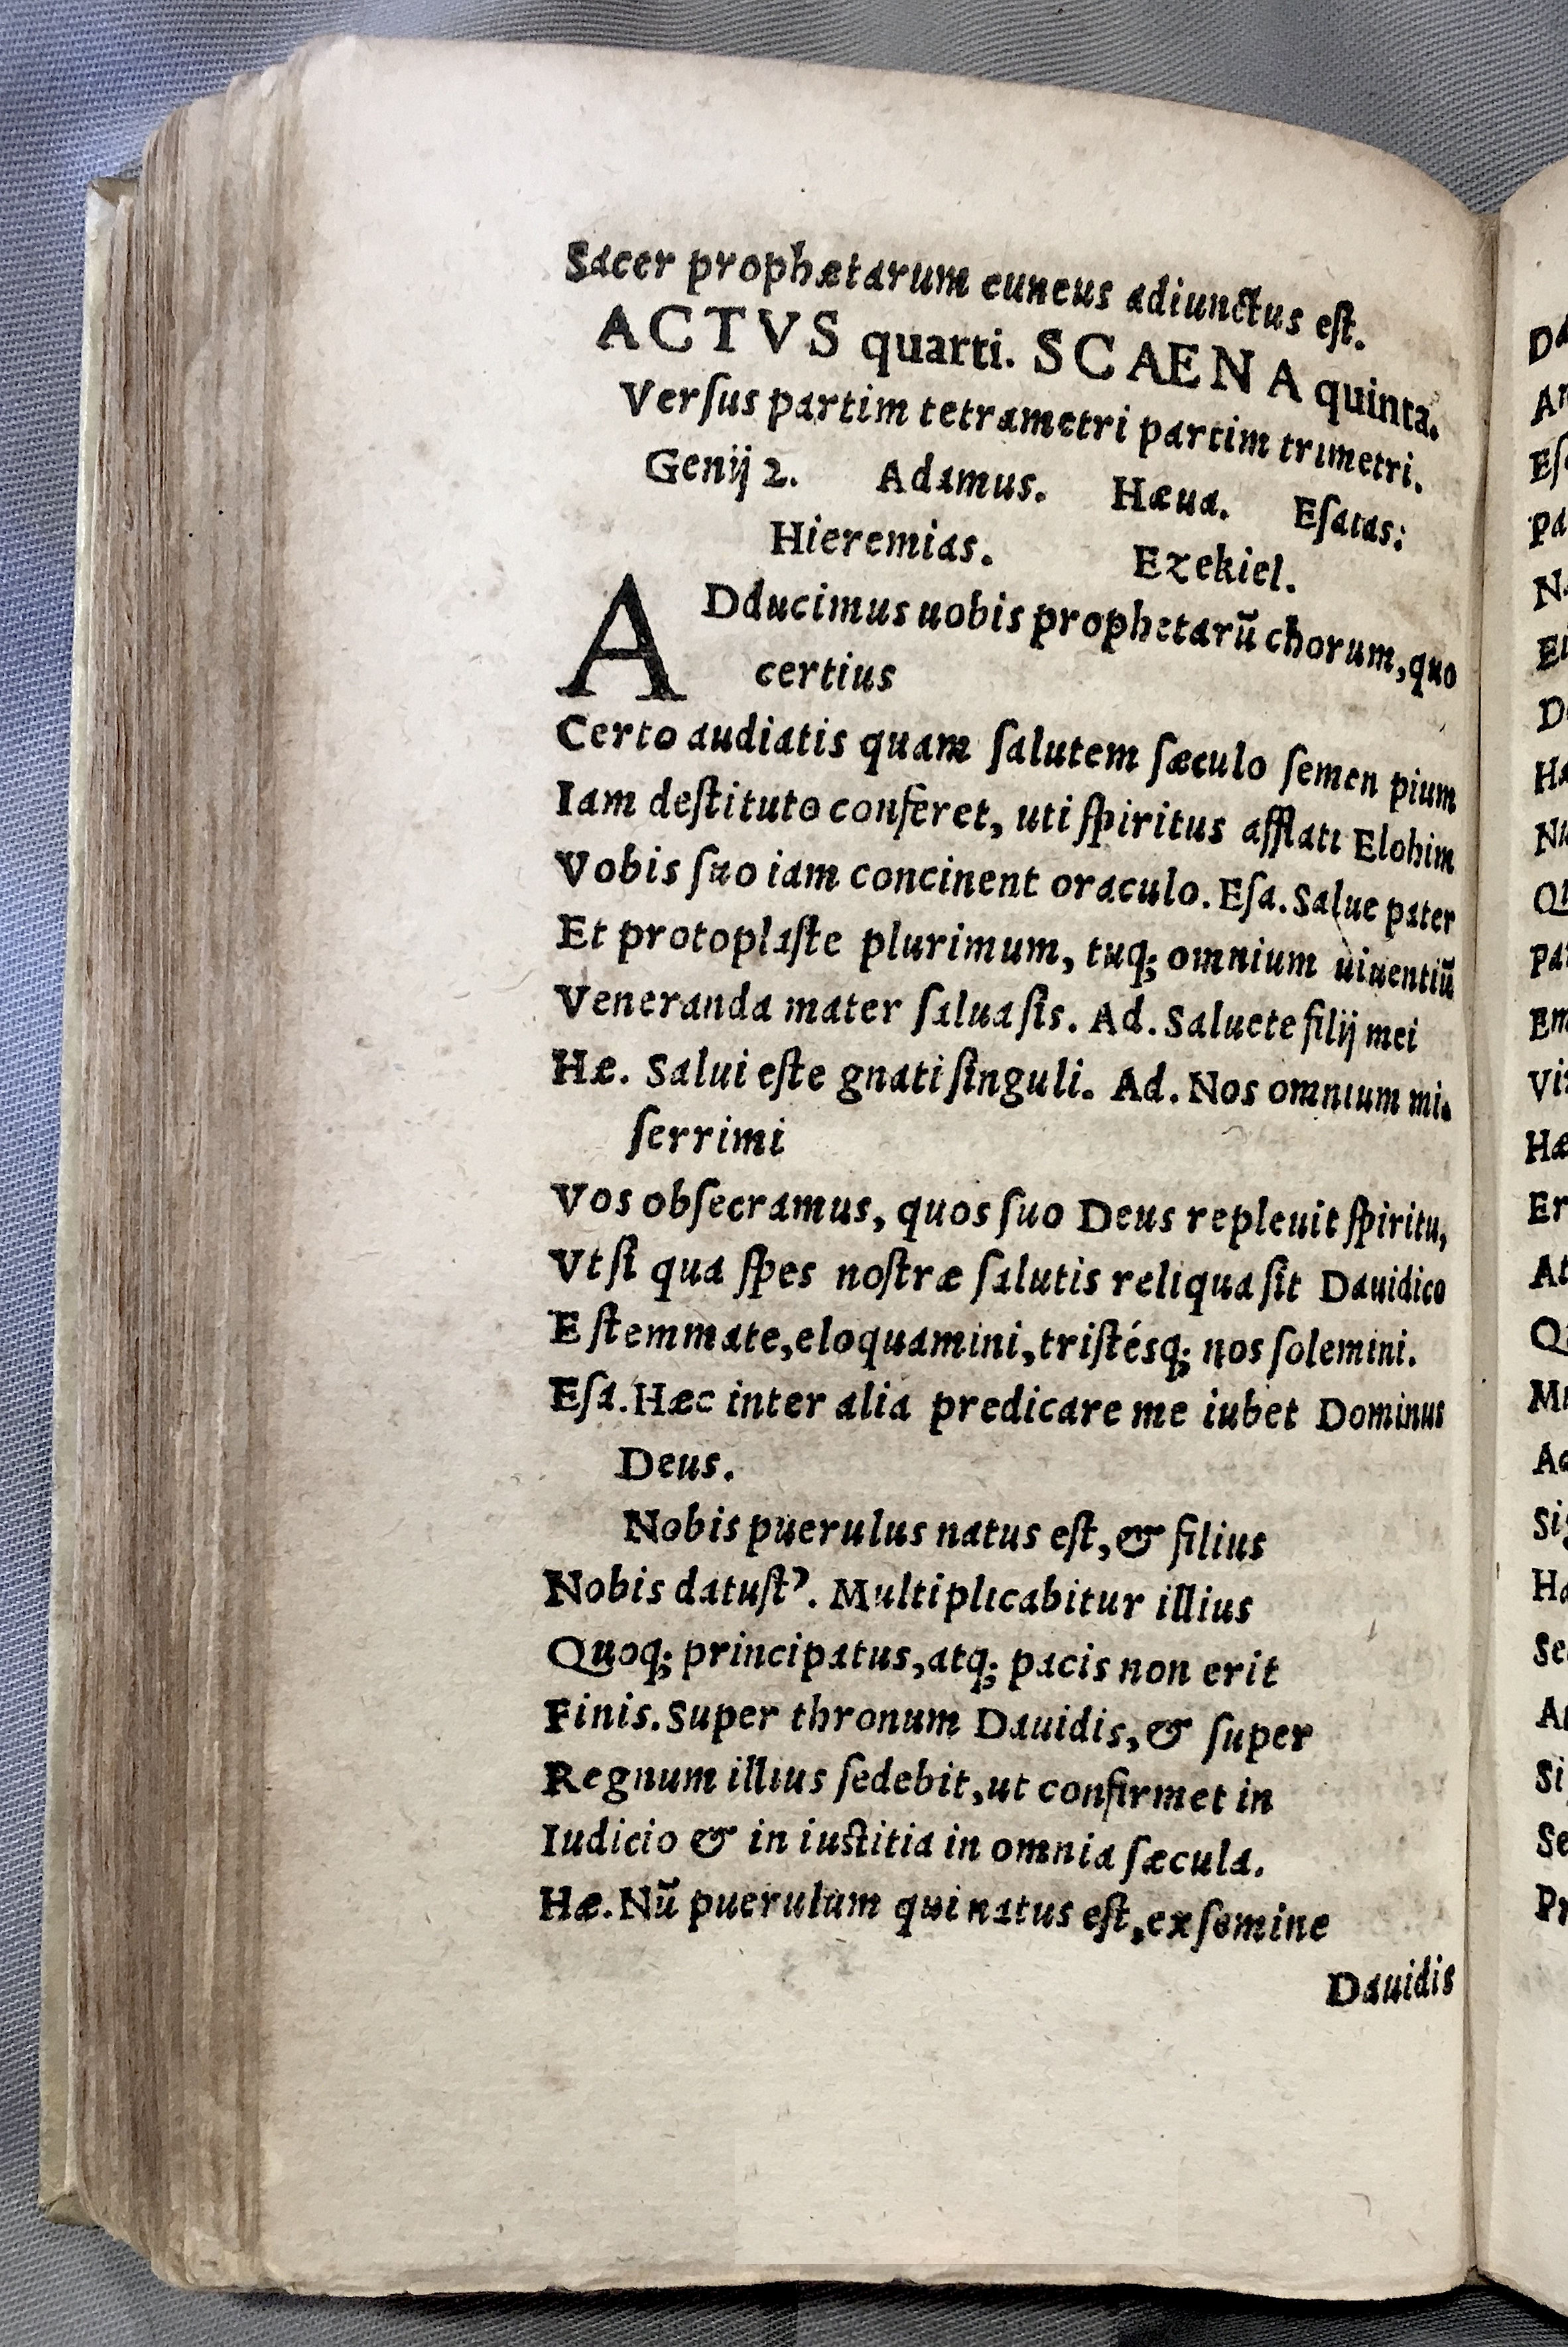 Sacer prophætarum cuneus adiunctus eſt.
ACTVS quarti. SCAENA quinta.
Verſus partim tetrametri partim trimetri.
Genij 2. Adamus. Hæua. Eſaias:
Hieremias. Ezekiel.
ADducimus uobis prophetarū chorum, quo
certius
Certo audiatis quam ſalutem ſæculo ſemen pium
Iam deſtituto conferet, uti ſpiritus afflati Elohim
Vobis ſuo iam concinent oraculo. Eſa. Salue pater
Et protoplaſte plurimum, tuq; omnium uiuentiū
Veneranda mater ſalua ſis. Ad. Saluete filij mei
Hæ. Salui eſte gnati ſinguli. Ad. Nos omnium mi-
ſerrimi
Vos obſecramus, quos ſuo Deus repleuit ſpiritu,
Vt ſi qua ſpes noſtræ ſalutis reliqua ſit Dauidico
E ſtemmate, eloquamini, triſtésq; nos ſolemini.
Eſa. Hæc inter alia predicare me iubet Dominus
Deus.
Nobis puerulus natus eſt, & filius
Nobis datuſt’. Multiplicabitur illius
Quoq; principatus, atq; pacis non erit
Finis. Super thronum Dauidis, & ſuper
Regnum illius ſedebit, ut confirmet in
Iudicio & in iuſtitia in omnia ſæcula.
Hæ. Nū puerulum qui natus eſt, ex ſemine
Dauidis